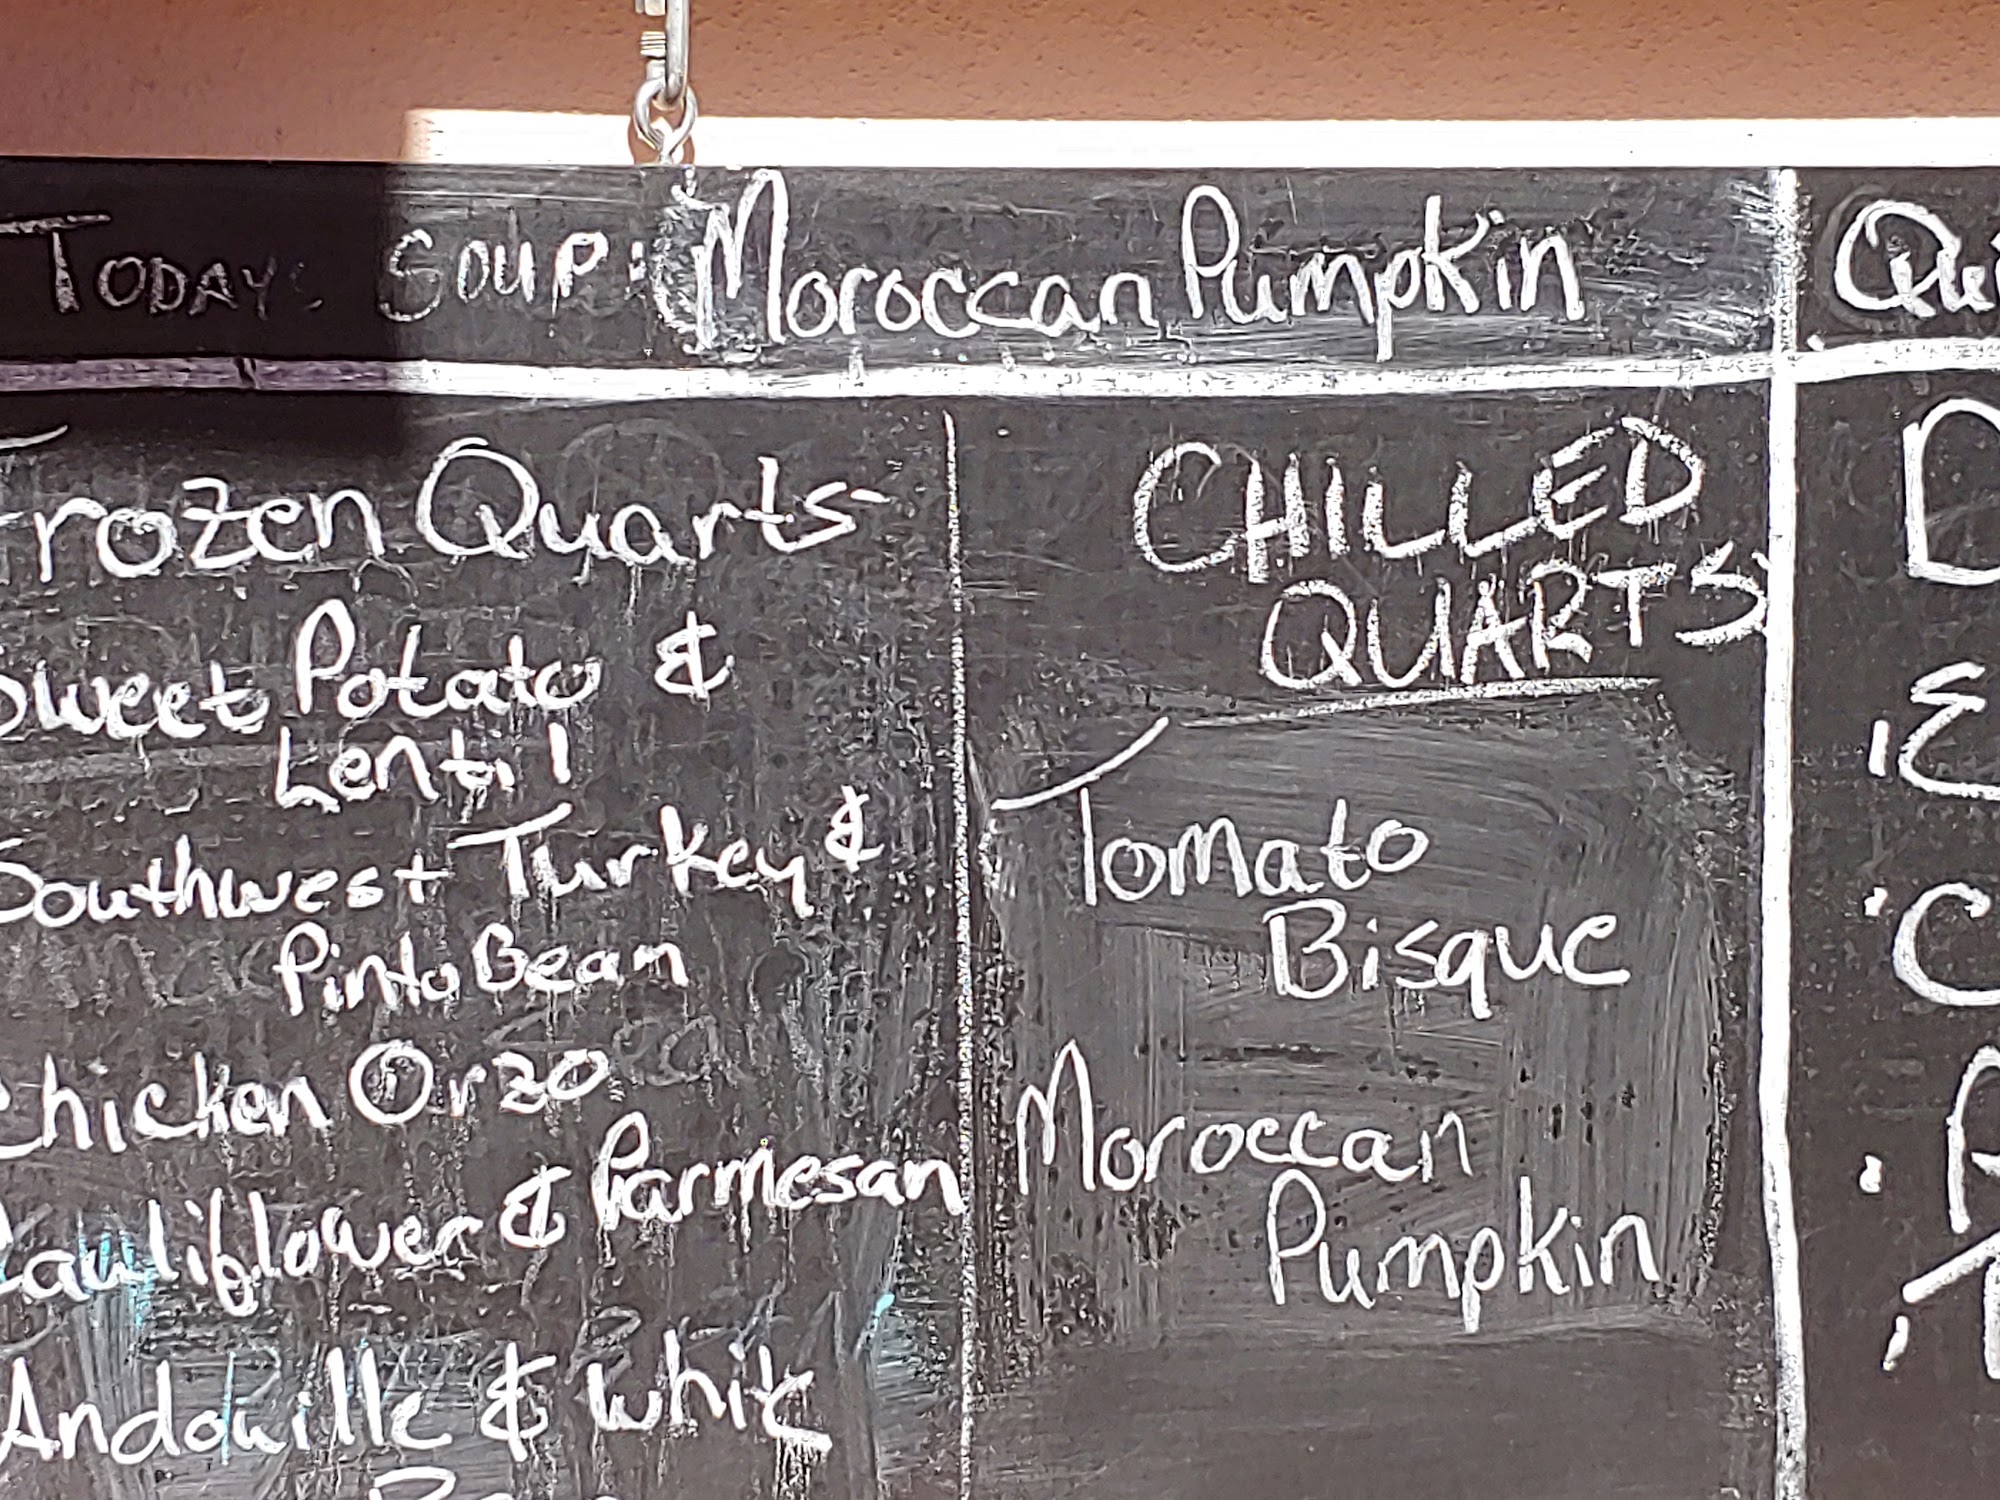 Today's Soup: Moroccan Pumpkin
Frozen Quarts
Sweet Potato &
Lentil
Southwest Turkey &
Pinto Bean
Chicken Orzo
Cauliflower & Parmesan
Andouille & White
CHILLED
QUARTS
Tomato
Bisque
Moroccan
Pumpkin